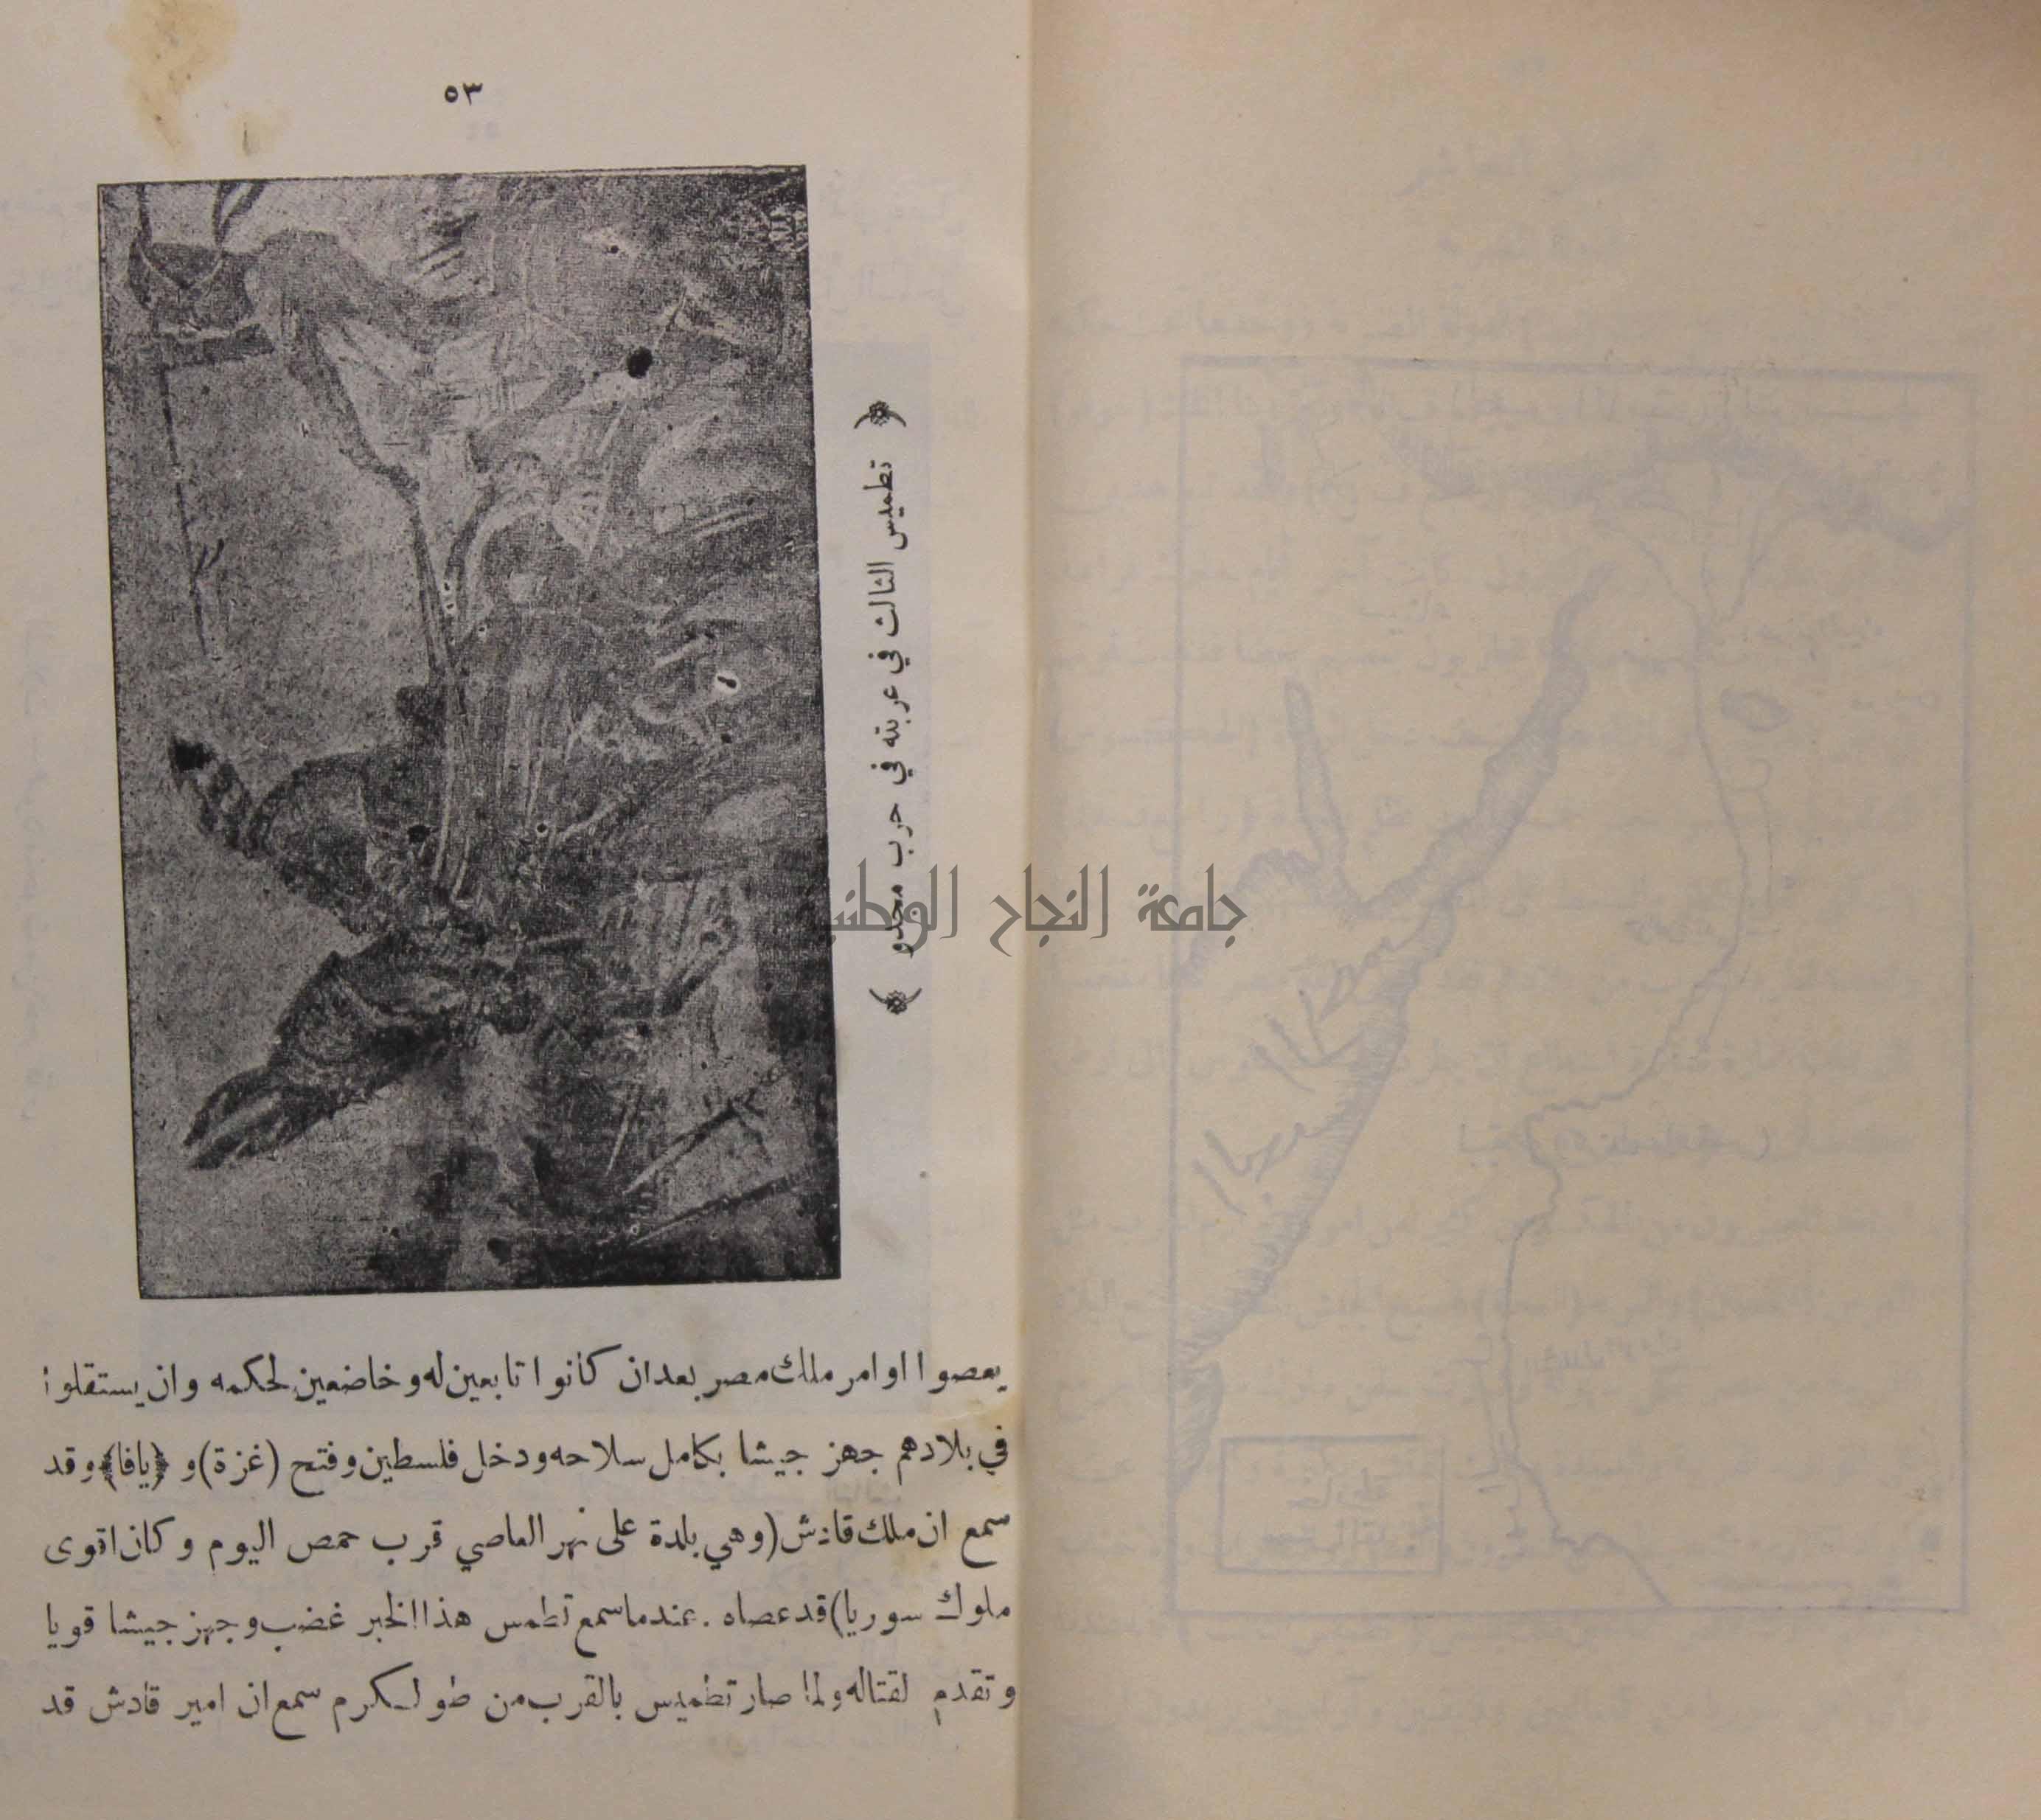 ٥٣
تطميس الثالث في عربته في حرب مجدو
جامعة النجاح الوطنية
يعصوا اوامر ملك مصر بعدان كانوا تابعين له وخاضعين لحكمه وان يستقلوا
في بلادهم جهز جيشا بكامل سلاحه ودخل فلسطين وفتح (غزة) و ﴿يافا﴾ وقد
سمع ان ملك قادش (وهي بلدة على نهر العاصي قرب حمص اليوم وكان اقوى
ملوك سوريا) قد عصاه . عندما سمع تطمس هذا الخبر غضب وجهز جيشا قويا
وتقدم لقتاله ولما صار تطميس بالقرب من طولكرم سمع ان امير قادش قد